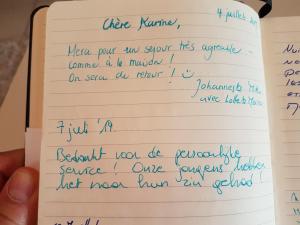 4 juillet
Chère Karine,
Merci pour un séjour très agréable -
comme à la maison !
On sera de retour !
Johanneste
avec
7 juli '19.
Bedankt voor de persoonlijke
service ! Onze jongens hebben
het naar hun zin gehad !